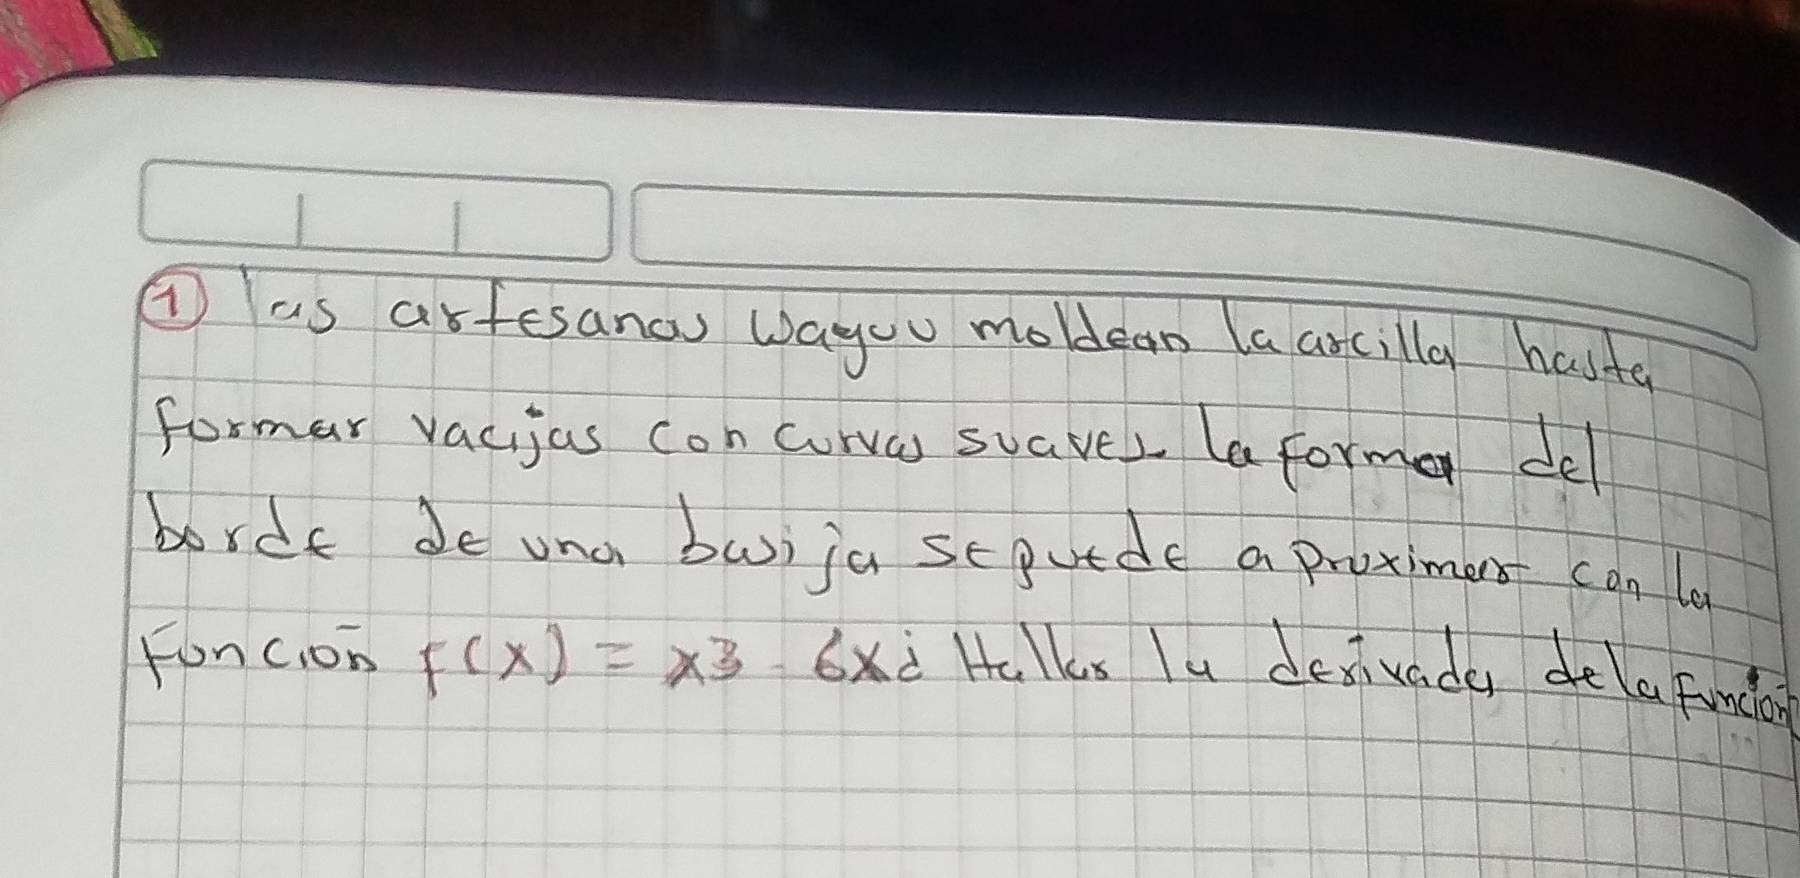 ① las artesanas wayuu moldean la arcilla hasta
formar vacijas con curvas suaves la forma del
borde de una basija se puede aproximar con la
Función f(x) = x3 - 6x¿ Hallar la derivada de la función